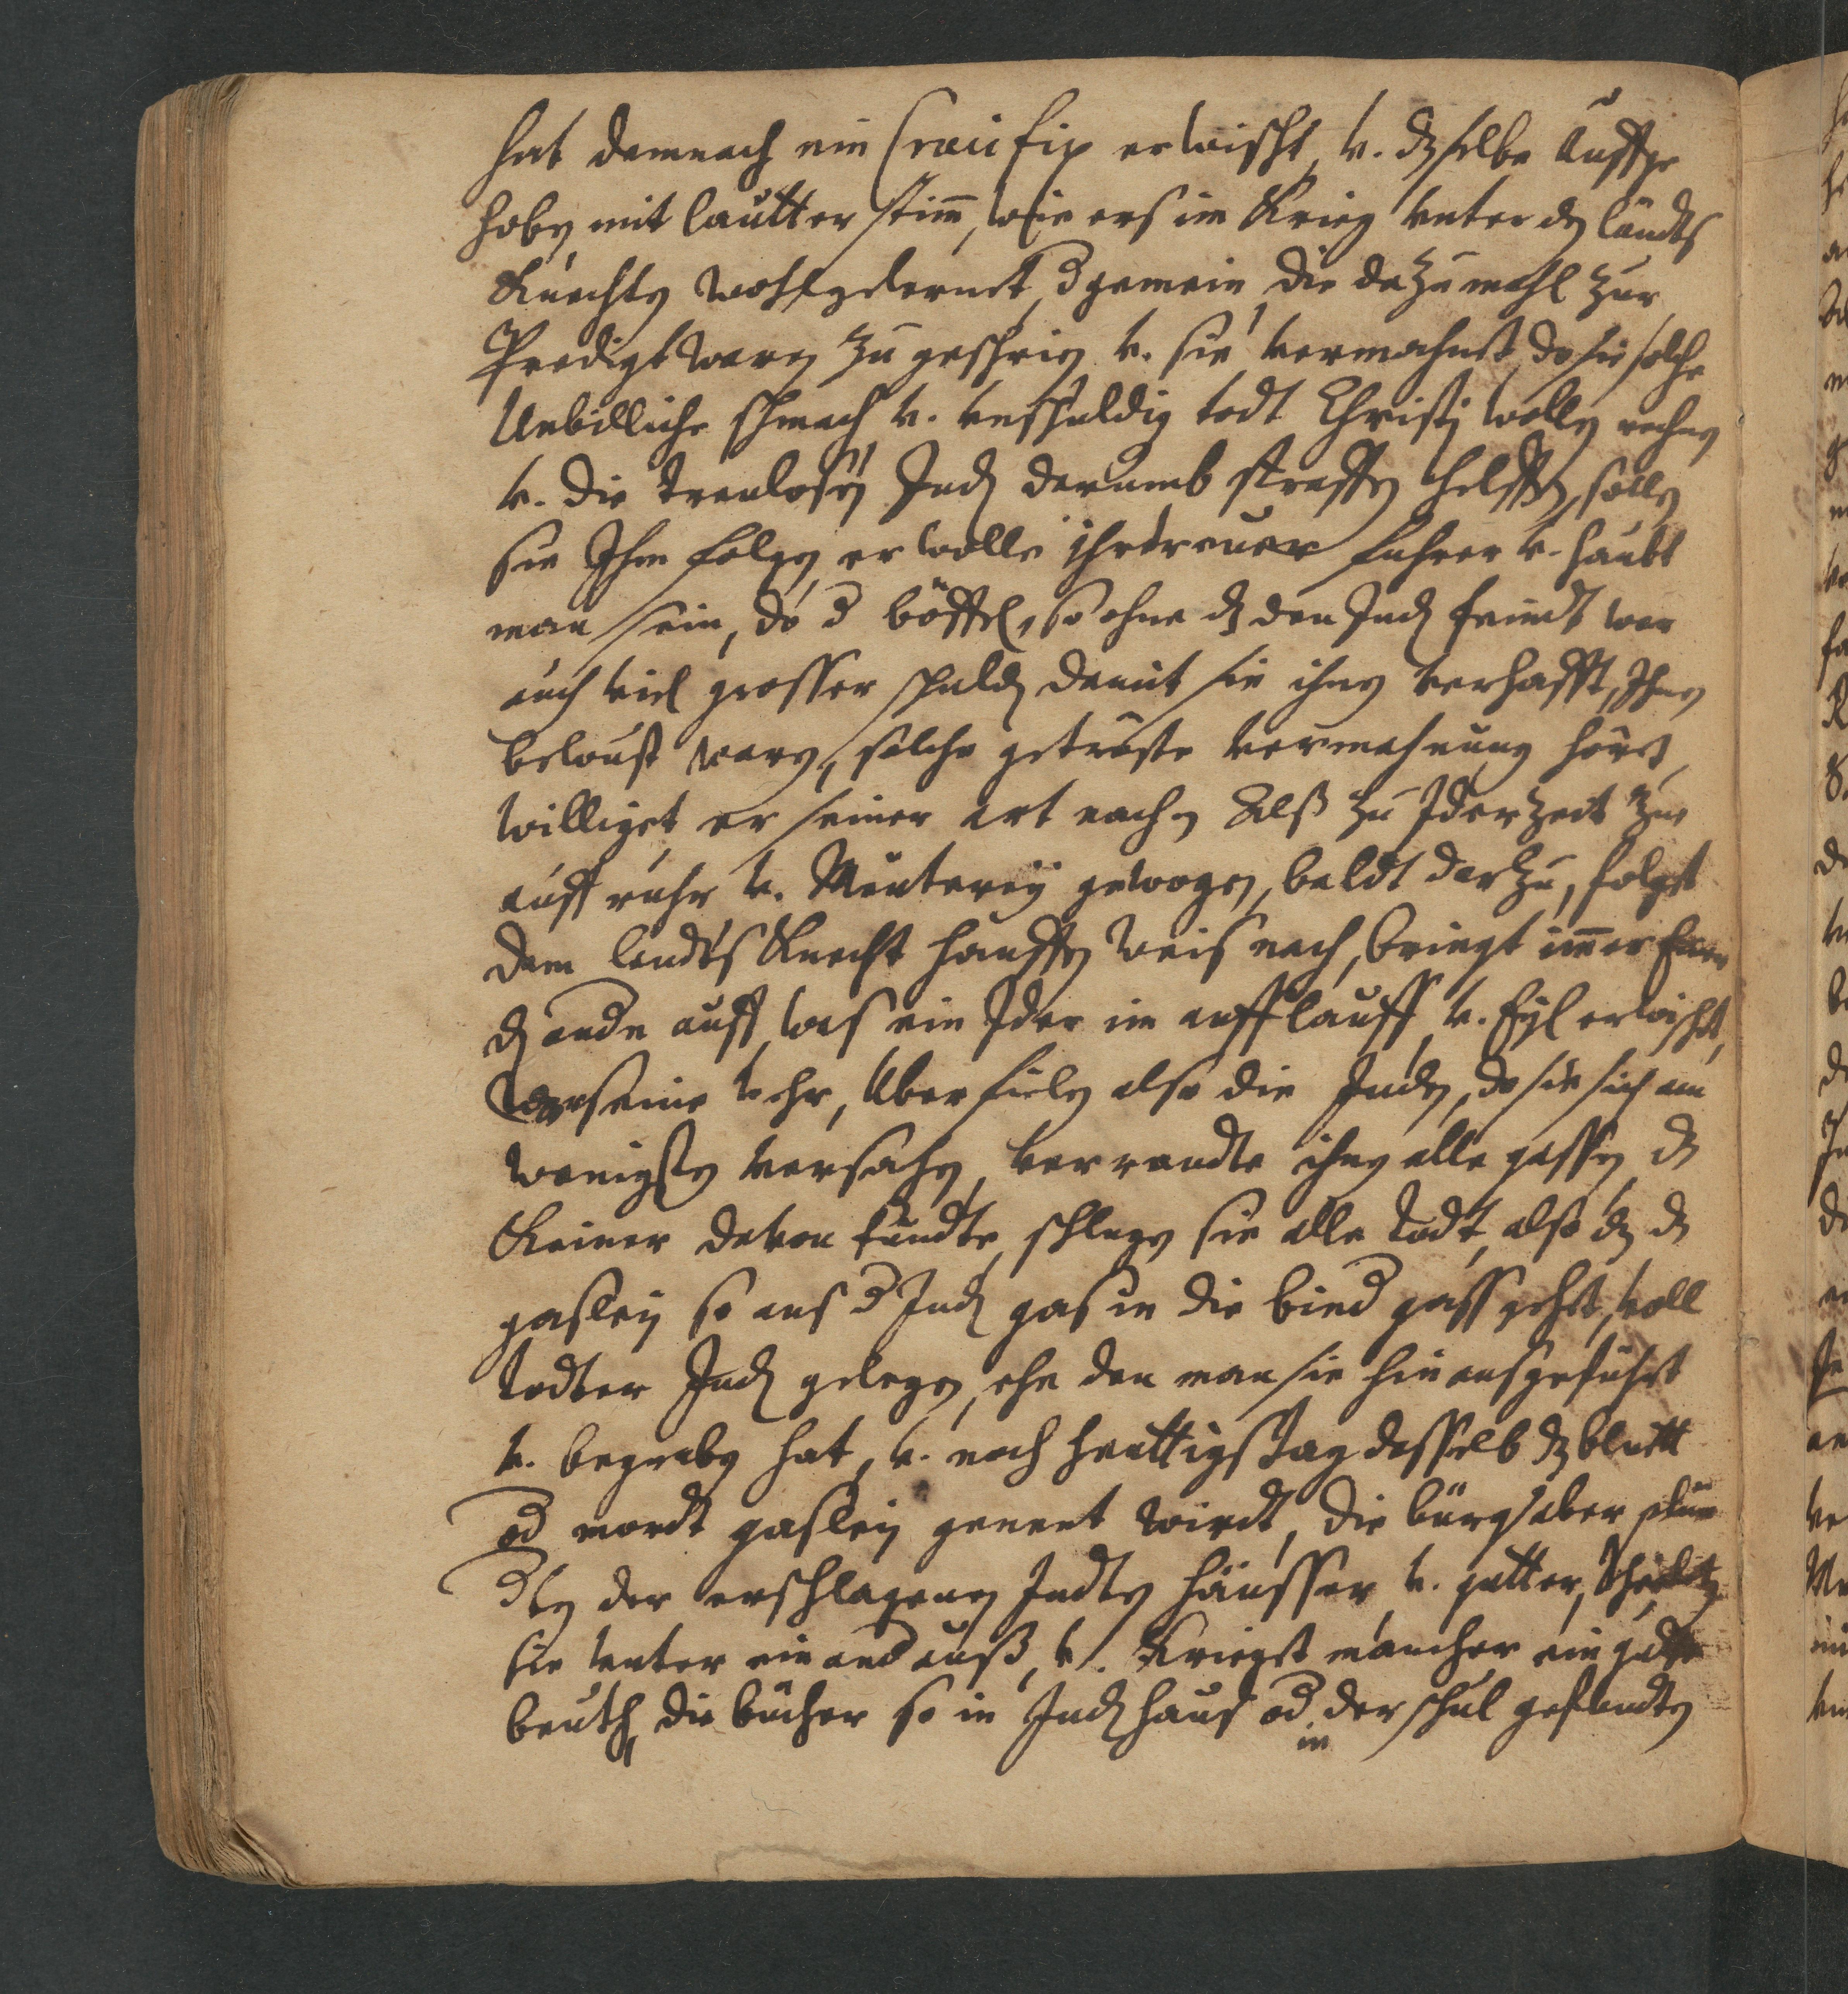 hat demnach ein Crucifix erwischt, v. dz selbe auffge
hoben mit lautter stim, wie ers im Krieg unter den landts
Knechten wohl gelernet, d gemein die dazumahl zur
Predigt waren zu geschrien v. sie vermahnet, do sie solche
Unbilliche schmach v. unschuldig todt Christj wollen rechnen
v. die treulosen Juden darumb straffen helffen, sollen
sie Ihm folgen, er wolle ihr treuer fuhrer v. haubt
man sein, do d böffel, so ohne dz den Juden feindt war
auch viel grosser schulden damit sie ihnen verhafft, Ihnen
bewust waren, solche getroste vermahnung höret,
williget er seiner art nach, Alß zu Jder zeit zue
auffruhr v. Meuterey gewogen, baldt darzu, folget
dem landts Knecht hauffen weis nach, bringt imer Einer
den andn auff, was ein Jder im aufflauff v. Eyl erwischt,
war seine wehr, Uberfielen also die Juden, do sie sich am
wenigsten versahen, verrandte ihnen alle gassen, dz
Keiner davon kundte, schlugen sie alle todt, also dz dz
gasley so aus d Juden gas in die bind gass gehet, voll
todter Juden gelegen, ehe den man sie hinausgefuhrt
v. begraben hat, v. noch heuttigs tag desselb dz blutt
od mordt gasley genent wirdt, die bürg aber plun
dten der erschlagenen Judten häusser v. gutter, theilten
sie unter einand auß, v. Kriegt mancher ein gutte
beuth, die bücher so in Juden haus od in der schul gefundten